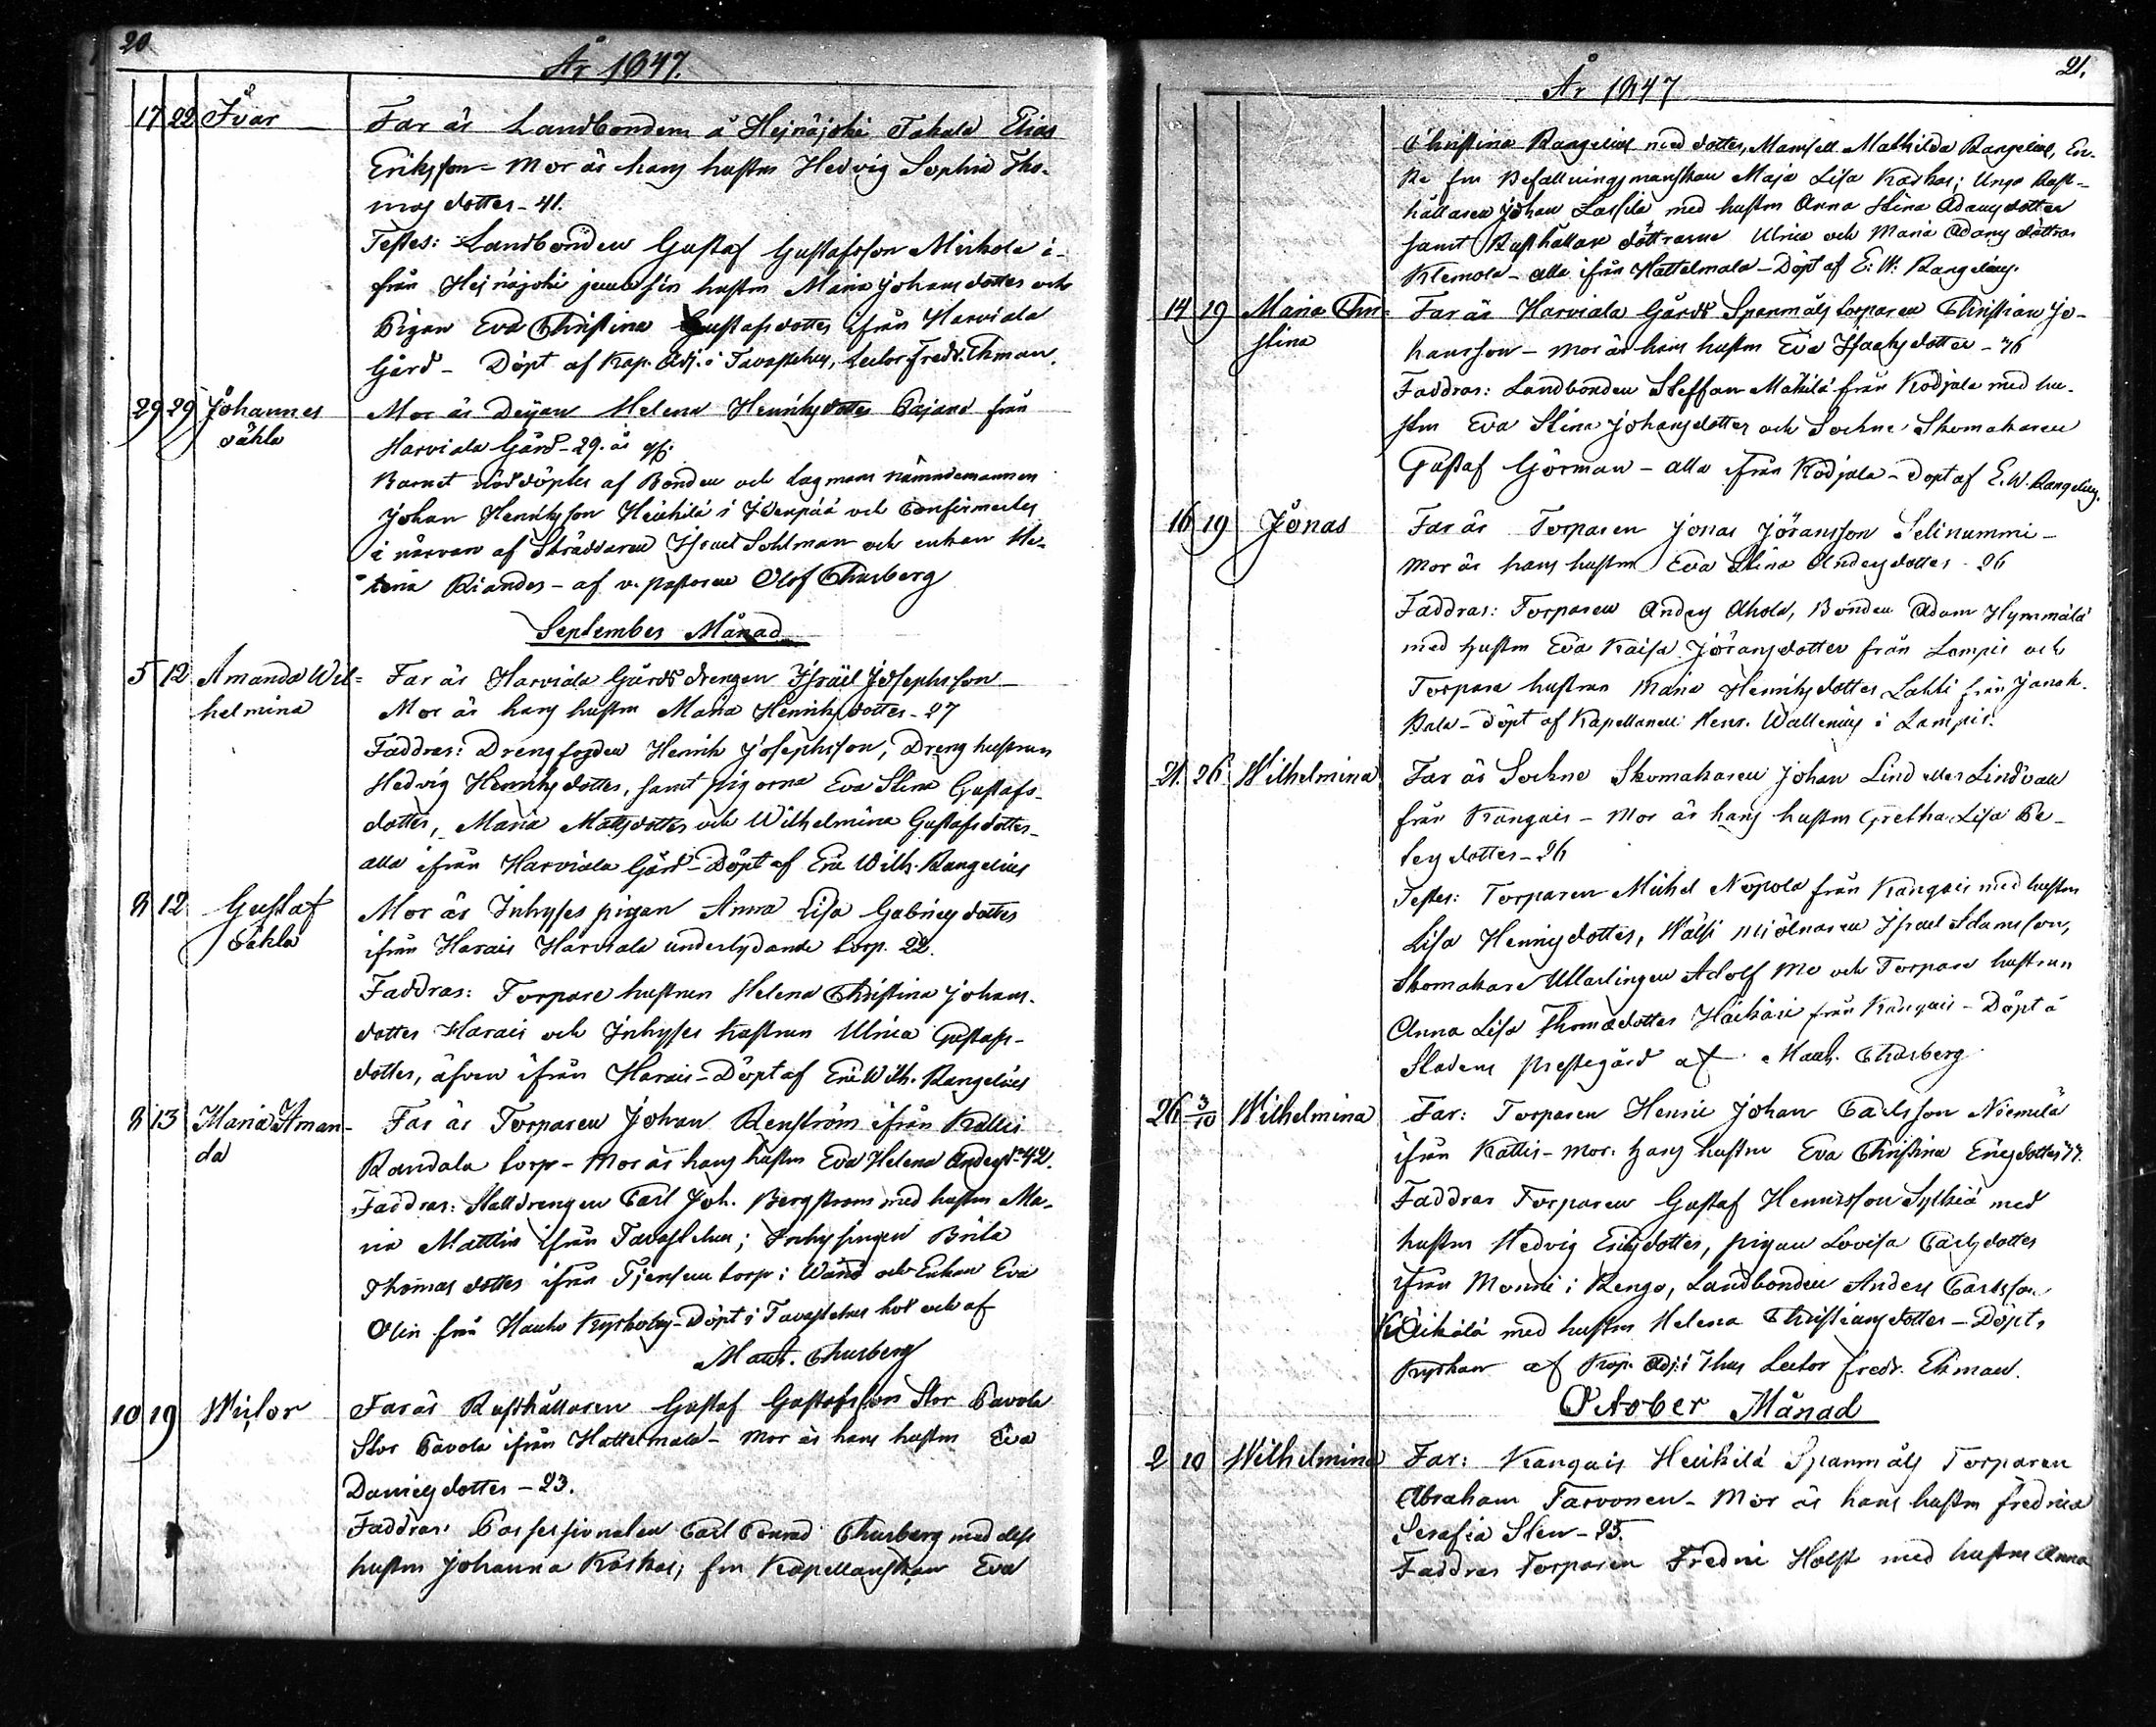 20
År 1847.
17 22 Ivar Far är Landbonden å Heinäjoki Takala Elias
Eriksson - Mor är hans hustru Hedvig Sophia Tho-
mas dotter - 41.
Testes: Landbonden Gustaf Gustafsson Mickola i-
från Heinäjoki jemte sin hustru Maria Johans dotter och
Pigan Eva Christina Gustafsdotter ifrån Harviala
Gård - Döpt af Kap. Adj. i Tavastehus, Lector Fredr. Ekman.
29 29 Johannes Mor är Deijan Helena Henriksdotter Pajane från
oäkta Harviala Gård - 29. år
Barnet nöddöptes af Bonden och lagmans nämndemannen
Johan Henriksson Heikkilä i Idenpää och Confirmertes
i närvaro af Skräddaren Israel Sohlman och enkan He-
lena Riander - af v. pastoren Olof Thusberg
September Månad
5 12 Amanda Wil= Far är Harviala Gårds drengen Israel Josephsson -
helmina Mor är hans hustru Maria Henriksdotter - 27
Faddrar: Drengfogden Henrik Josephsson, Dreng hustrun
Hedvig Henriksdotter, samt pigorna Eva Stina Gustafs-
dotter, Maria Mattsdotter och Wilhelmina Gustafsdotter -
alla ifrån Harviala Gård - Döpt af Eric Wilh. Rangelius
8 12 Gustaf Mor är Inhyses pigan Anna Lisa Gabrielsdotter
oäkta ifrån Harais Harviala underlydande torp. 22.
Faddrar: Torpare hustrun Helena Christina Johans-
dotter Harais och Inhyses hustrun Ulrica Gustafs-
dotter, äfven ifrån Harais - Döpt af Eric Wilh. Rangelius
8 13 Maria Aman- Far är Torparen Johan Renström ifrån Kattis
da Randala torp - Mor är hans hustru Eva Helena Andersdr 42.
Faddrar: Stalldrengen Carl Joh. Bergström med hustru Ma-
ria Mattlin ifrån Tavastehus; Inhysingen Brita
Thomas dotter ifrån torp i Wånå och Enkan Eva
Olin från Hauho Kyrkoby - Döpt i Tavastehus och af
Maur. Thusberg
10 19 Victor Far är Rusthållaren Gustaf Gustafsson Stor Pavola
Stor Pavola ifrån Hattelmala - Mor är hans hustru Eva
Danielsdotter - 23.
Faddrar: Possessionaten Carl Conrad Thusberg med dess
hustru Johanna Koskas; fru Kapellanskan Eva
21.
År 1847
Christina Rangelius med dotter, Mamsell Mathilda Rangelius, En-
ke fru Befallningsmanskan Maja Lisa Kaskas; Unga Rust-
hållaren Johan Lassila med hustru Anna Stina Adamsdotter
samt Rusthållare döttrarna Ulrica och Maria Adams döttrar
Klemola - alla ifrån Hattelmala - Döpt af E: W: Rangelius.
14 19 Maria Chri- Far är Harviala Gårds Spanmåls torparen Christian Jo-
stina hansson - Mor är hans hustru Eva Isacksdotter - 36
Faddrar: Landbonden Steffan Mattila från Kodjala med hu-
stru Eva Stina Johansdotter och Sockne Skomakaren
Gustaf Görman - alla ifrån Kodjala - Döpt af E. W. Rangelius.
16 19 Jonas Far är Torparen Jonas Jöransson Selinummi -
Mor är hans hustru Eva Stina Andersdotter - 26
Faddrar: Torparen Anders Ahola, Bonden Adam Hymmälä
med hustru Eva Kaisa Jöransdotter från Lampis och
Torpare hustrun Maria Henriksdotter Lahti från Janak-
kala - Döpt af Kapellanen Henr. Wallenius i Lampis.
21. 26 Wilhelmina Far är Sockne Skomakaren Johan Lind eller Lindvall
från Kangais - Mor är hans hustru Gretha Lisa Pe-
ters dotter - 26
Testes: Torparen Michel Nopola från Kangais med hustru
Lisa Henricsdotter, mjölnaren Israel Adamsson,
Skomakare Lärlingen Adolf Mo och Torpare hustrun
Anna Lisa Thomasdotter från Kangais - Döpt å
Stadens prestegård af Maur. Thusberg
26 3/10 Wilhelmina Far: Torparen Henric Johan Carlsson Niemelä
ifrån Kattis - Mor: hans hustru Eva Christina Ericsdotter 44.
Faddrar Torparen Gustaf Henricsson Sylkiä med
hustru Hedvig Eriksdotter, pigan Lovisa Carlsdotter
ifrån Monni i Rengo, Landbonden Anders Carlsson
med hustru Helena Christiansdotter - Döpt i
Kyrkan af Kap. Adj. i Thus Lector Fredr. Ekman.
October Månad
2 10 Wilhelmina Far: Kangais Heikkilä Spanmåls Torparen
Abraham Tarvonen - Mor är hans hustru Fredrica
Serafia Sten - 25.
Faddrar Torparen Fredric Holst med hustru Anna